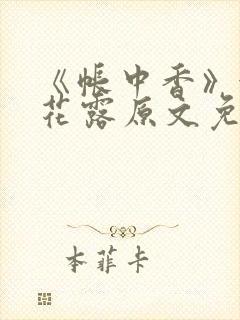 《帐中香》
花露原文免
本菲卡